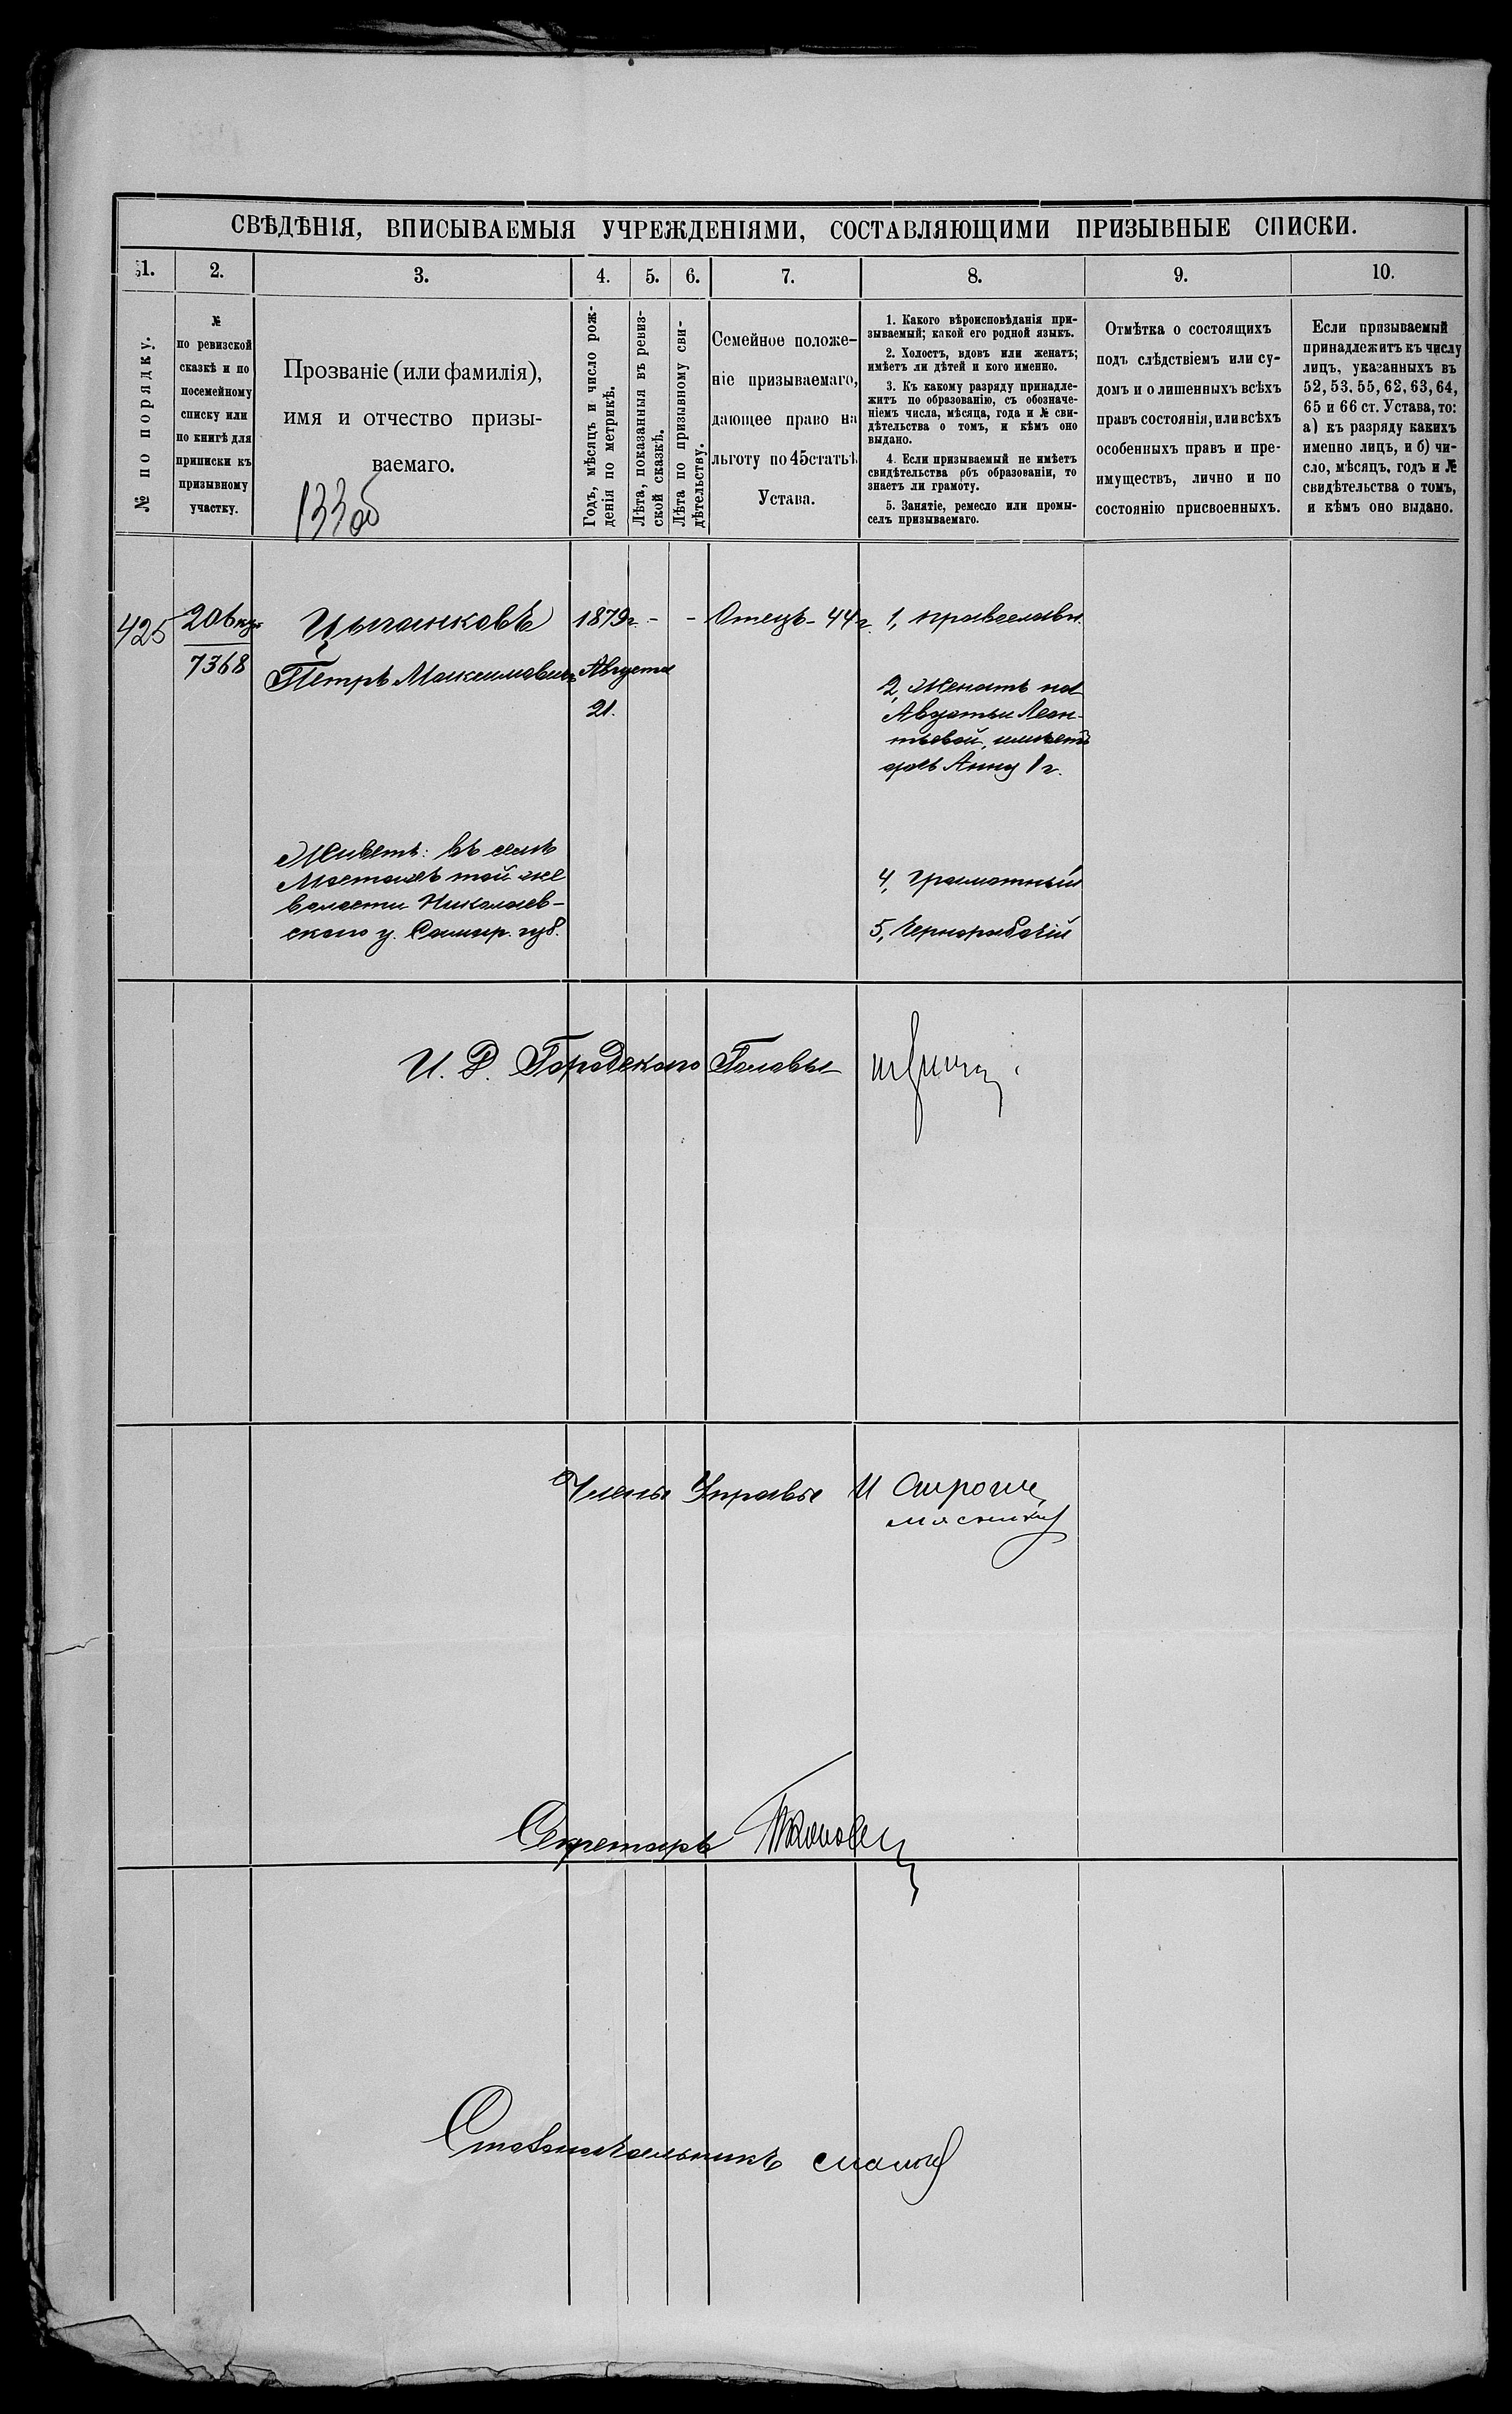 СВѢДѢНІЯ, ВПИСЫВАЕМЫЯ УЧРЕЖДЕНІЯМИ, СОСТАВЛЯЮЩИМИ ПРИЗЫВНЫЕ СПИСКИ.
1. 2. 3. 4. 5. 6. 7. 8. 9. 10.
№ по порядку.
№
по ревизской
сказкѣ и по
посемейному
списку или
по книгѣ для
приписки къ
призывному
участку.
Прозваніе (или фамилія),
имя и отчество призы-
ваемаго.
133об
Годъ, мѣсяцъ и число рож-
денія по метрикѣ.
Лѣта, показанныя въ ревиз-
ской сказкѣ.
Лѣта по призывному сви-
дѣтельству.
Семейное положе-
ніе призываемаго,
дающее право на
льготу по 45 статьѣ
Устава.
1. Какого вѣроисповѣданія при-
зываемый; какой его родной языкъ.
2. Холостъ, вдовъ или женатъ;
имѣетъ ли дѣтей и кого именно.
3. Къ какому разряду принадле-
житъ по образованію, съ обозначе-
ніемъ числа, мѣсяца, года и № сви-
дѣтельства о томъ, и кѣмъ оно
выдано.
4. Если призываемый не имѣетъ
свидѣтельства объ образованіи, то
знаетъ ли грамоту.
5. Занятіе, ремесло или промы-
селъ призываемаго.
Отмѣтка о состоящихъ
подъ слѣдствіемъ или су-
домъ и о лишенныхъ всѣхъ
правъ состоянія, или всѣхъ
особенныхъ правъ и пре-
имуществъ, лично и по
состоянію присвоенныхъ.
Если призываемый
принадлежитъ къ числу
лицъ, указанныхъ въ
52, 53, 55, 62, 63, 64,
65 и 66 ст. Устава, то:
а) къ разряду какихъ
именно лицъ, и б) чи-
сло, мѣсяцъ, годъ и №
свидѣтельства о томъ,
и кѣмъ оно выдано.
425
7368
Цыганковъ
Петръ Максимовичъ
Живетъ: въ селѣ
Мостахъ той же
волости Николаев-
скаго у. Самар. губ.
1879г. - -
Августа
21.
Отецъ - 44г.
1, православн.
2, Женатъ на
Авдотьи Леон-
тьевой, имѣетъ
дочь Анну 1 г.
4, Грамотный
5, Чернорабочій
И. Д. Городского Головы
Члены Управы
Секретарь
Столоначальникъ